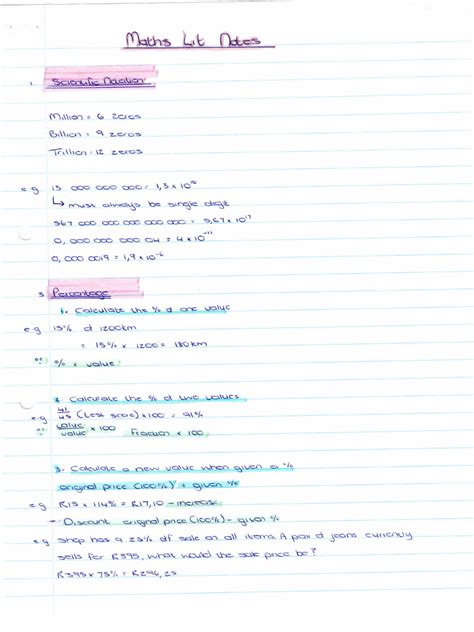 Maths Lit Notes
1. Scientific Notation
Million = 6 zeros
Billion = 9 zeros
Trillion = 12 zeros
e.g 13 000 000 000 = 1,3 x 10^10
↳ must always be single digit
567 000 000 000 000 000 = 5,67 x 10^17
0, 000 000 000 04 = 4 x 10^-11
0, 000 0019 = 1,9 x 10^-6
Percentage
1. Calculate the % of one value
e g 15% of 1200km
= 15% x 1200 = 180km
% x value
2. Calculate the % of two values
e g 41/45 (test score) x 100 = 91%
value/value x 100 Fraction x 100
3. Calculate a new value when given a %
original price (100%) + given %
e g R15 x 114% = R17,10 - increase
- Discount original price (100%) - given %
e g Shop has a 25% of sale on all items. A pair of jeans currently
sells for R395, what would the sale price be?
R395 x 75% = R296,25